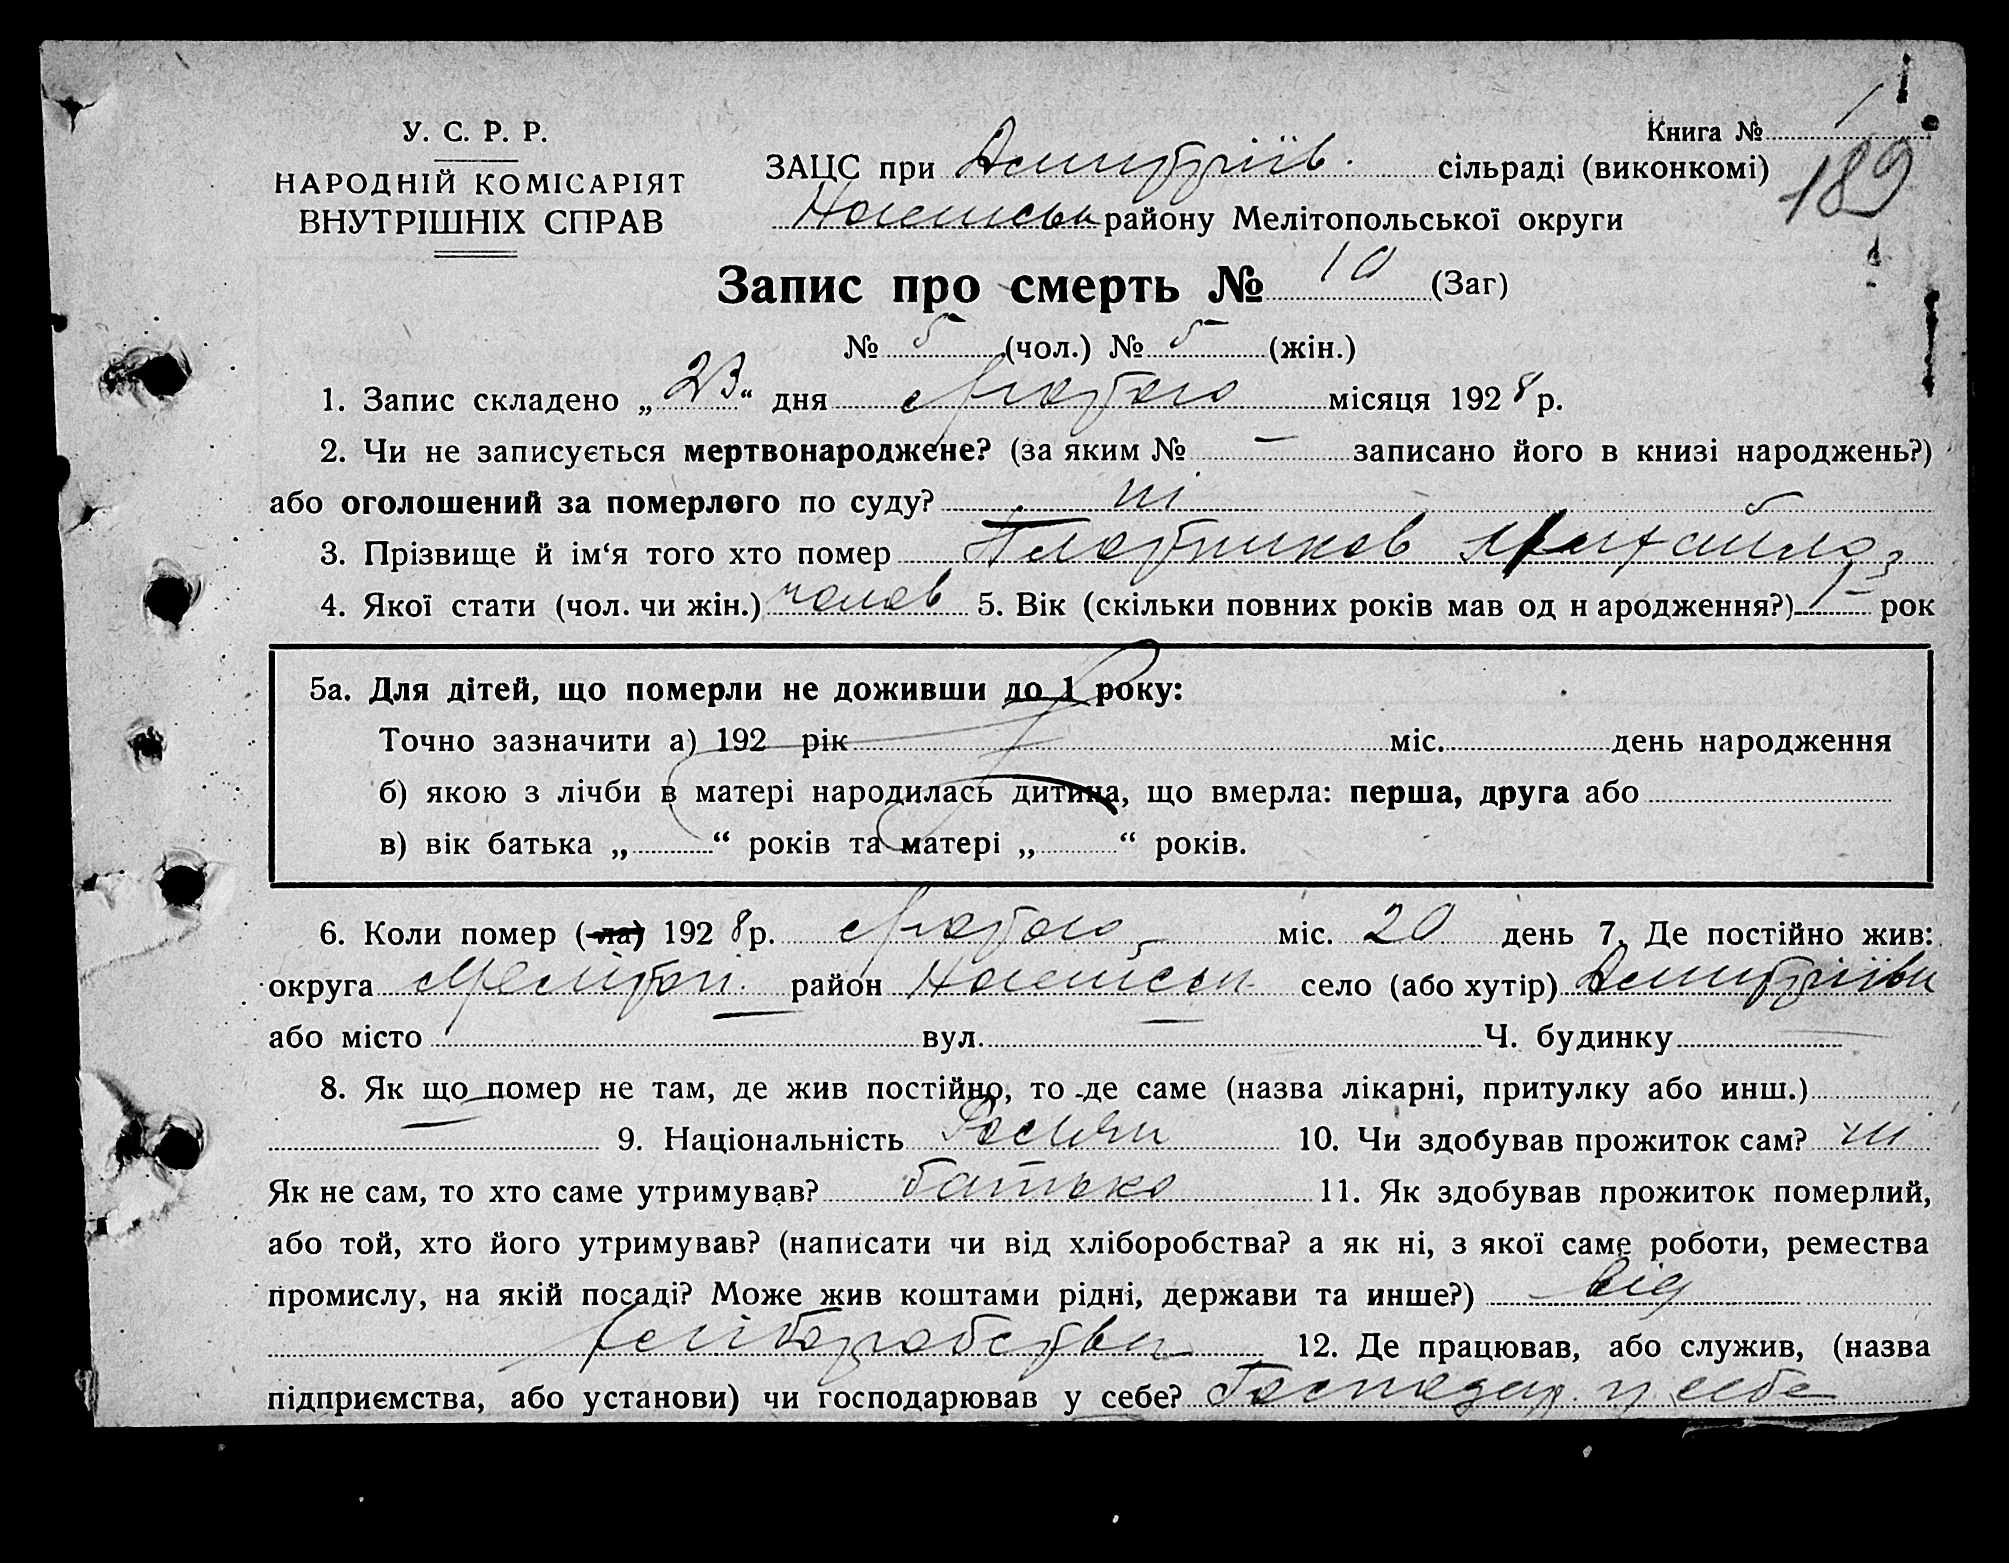 Книга № 1
У. С. Р. Р.
НАРОДНІЙ КОМІСАРІЯТ
ВНУТРІШНІХ СПРАВ
ЗАЦС при Дмитріїв. сільраді (виконкомі)
189
Ногайськ району Мелітопольської округи
Запис про смерть № 10 (Заг)
№ 5 (чол.) № 5 (жін.)
1. Запис складено „23“ дня Лютого місяця 1928 р.
2. Чи не записується мертвонароджене? (за яким № — записано його в книзі народжень?)
або оголошений за померлого по суду? ні
3. Прізвище й ім‘я того хто помер Плотников Михайло
4. Якої стати (чол. чи жін.) чолов 5. Вік (скільки повних років мав од н ародження?) 1 рок
5а. Для дітей, що померли не доживши до 1 року:
Точно зазначити а) 192 рік міс. день народження
б) якою з лічби в матері народилась дитина, що вмерла: перша, друга або
в) вік батька „ “ років та матері „ “ років.
6. Коли помер (ла) 1928 р. Лютого міс. 20 день 7. Де постійно жив:
округа Мелітоп. район Ногайськ село (або хутір) Дмитріївк
або місто — вул. — Ч. будинку —
8. Як що помер не там, де жив постійно, то де саме (назва лікарні, притулку або инш.)
— 9. Національність 10. Чи здобував прожиток сам? ні
Як не сам, то хто саме утримував? батько 11. Як здобував прожиток померлий,
або той, хто його утримував? (написати чи від хліборобства? а як ні, з якої саме роботи, ремества
промислу, на якій посаді? Може жив коштами рідні, держави та инше?) від
хліборобства 12. Де працював, або служив, (назва
підприємства, або установи) чи господарював у себе? Господар. у себе